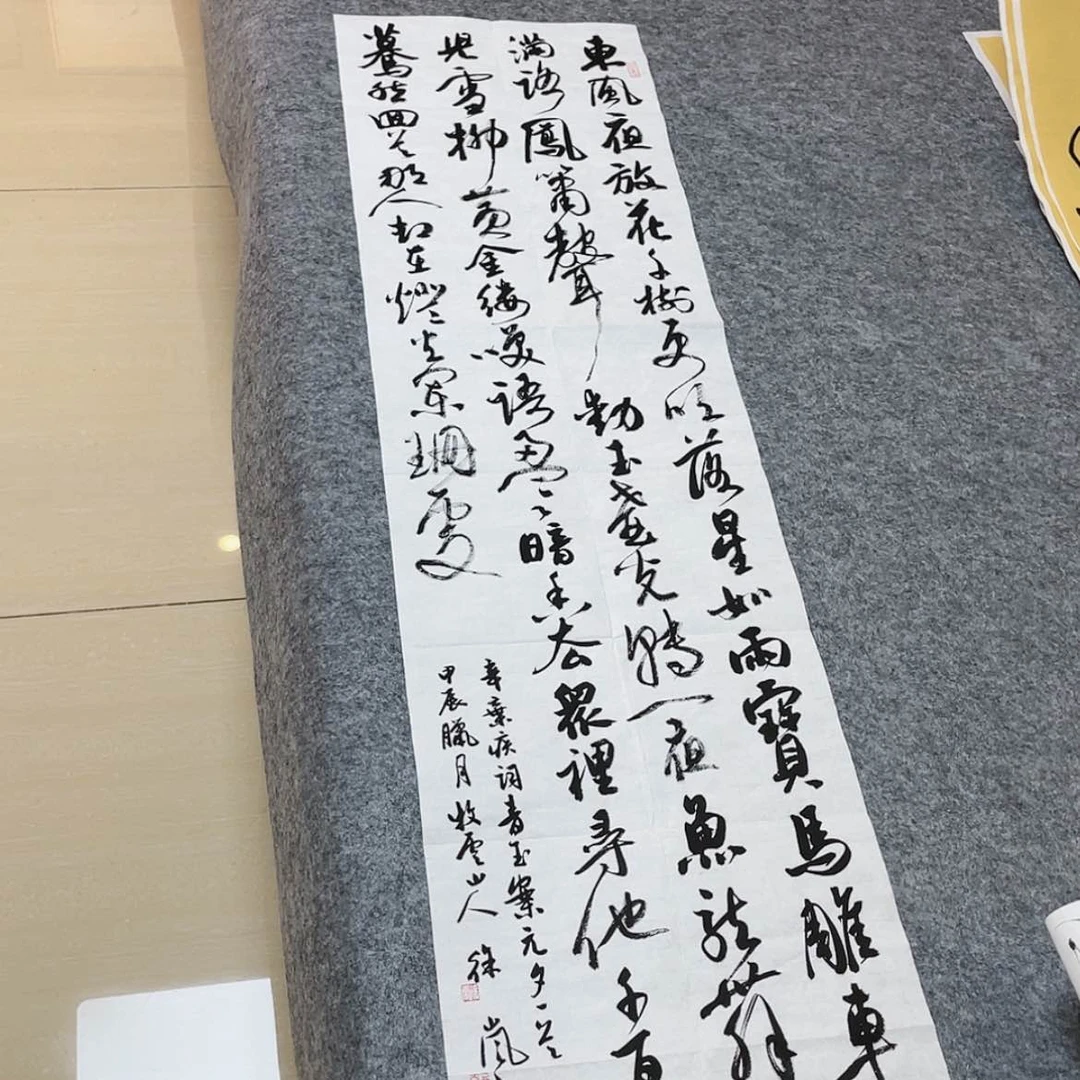 東風夜放花千樹更吹落星如雨寶馬雕車
滿路鳳簫聲動玉壺光轉一夜魚龍舞
兒雪柳黃金縷笑語盈々暗香去眾裡尋他千百
驀然回首那人却在燈火闌珊處
辛棄疾詞青玉案元夕一首
甲辰臘月牧雲山人徐嵐